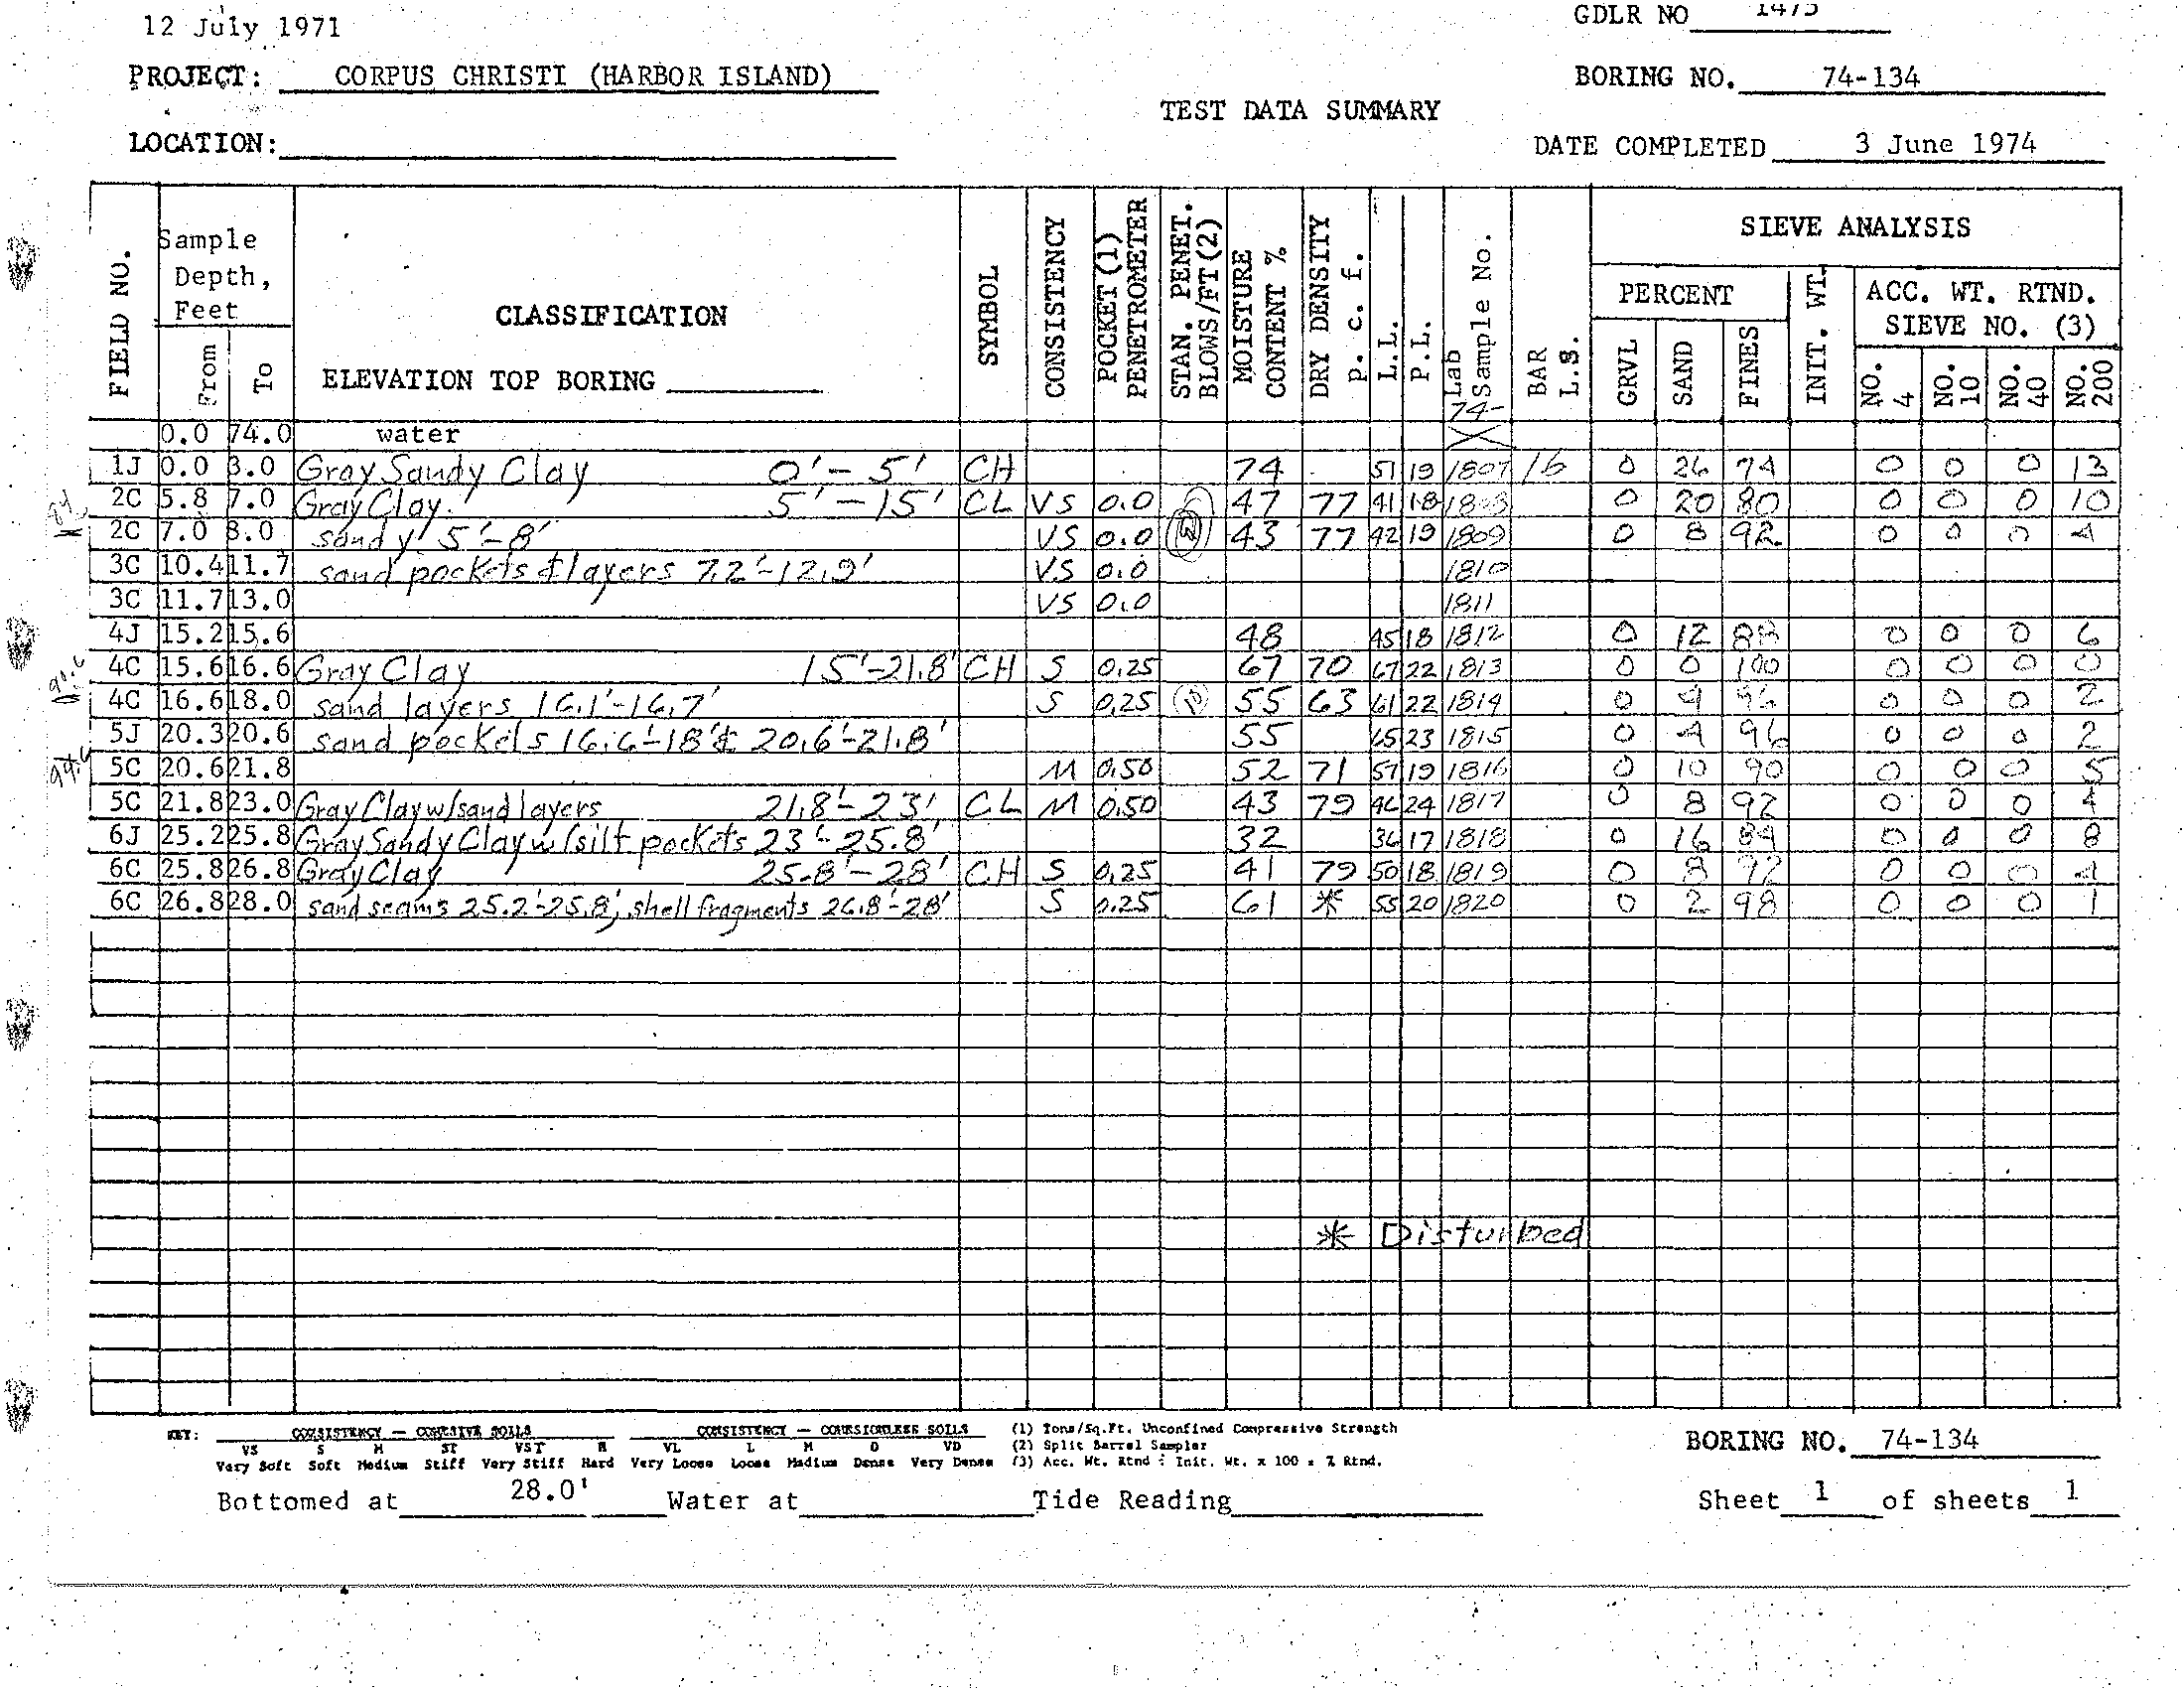 12 July 1971
GDLR NO 1475
PROJECT: CORPUS CHRISTI (HARBOR ISLAND)
BORING NO. 74-134
TEST DATA SUMMARY
LOCATION:
DATE COMPLETED 3 June 1974
FIELD NO. Sample Depth, Feet From To CLASSIFICATION ELEVATION TOP BORING SYMBOL CONSISTENCY POCKET (1) PENETROMETER STAN. PENET. BLOWS/FT(2) MOISTURE CONTENT % DRY DENSITY p. c. f. L.L. P.L. Lab Sample No. 74- BAR L.S. SIEVE ANALYSIS PERCENT GRVL SAND FINES INIT. WT. ACC. WT. RTND. SIEVE NO. (3) NO. 4 NO. 10 NO. 40 NO. 200
0.0 74.0 water
1J 0.0 3.0 Gray Sandy Clay 0'-5' CH 74 51 19 1807 16 0 26 74 0 0 0 13
2C 5.8 7.0 Gray Clay 5'-15' CL VS 0.0 47 77 41 18 1808 0 20 80 0 0 0 10
2C 7.0 8.0 sandy 5'-8' VS 0.0 43 77 42 19 1809 0 8 92 0 0 0 4
3C 10.4 11.7 sand pockets & layers 7.2'-12.9' VS 0.0 1810
3C 11.7 13.0 VS 0.0 1811
4J 15.2 15.6 48 45 18 1812 0 12 88 0 0 0 6
4C 15.6 16.6 Gray Clay 15'-21.8' CH S 0.25 67 70 67 22 1813 0 0 100 0 0 0 0
4C 16.6 18.0 sand layers 16.1'-16.7' S 0.25 55 63 61 22 1814 0 4 96 0 0 0 2
5J 20.3 20.6 sand pockets 16.6'-18' & 20.6'-21.8' 55 65 23 1815 0 4 96 0 0 0 2
5C 20.6 21.8 M 0.50 52 71 57 19 1816 0 10 90 0 0 0 5
5C 21.8 23.0 Gray Clay w/sand layers 21.8'-23' CL M 0.50 43 79 46 24 1817 0 8 92 0 0 0 4
6J 25.2 25.8 Gray Sandy Clay w/silt pockets 23'-25.8' 32 36 17 1818 0 16 84 0 0 0 8
6C 25.8 26.8 Gray Clay 25.8'-28' CH S 0.25 41 79 50 18 1819 0 8 92 0 0 0 4
6C 26.8 28.0 sand seams 25.2'-25.8', shell fragments 26.8'-28' S 0.25 61 * 55 20 1820 0 2 98 0 0 0 1
* Disturbed
KEY: CONSISTENCY — COHESIVE SOILS CONSISTENCY — COHESIONLESS SOILS (1) Tons/Sq.Ft. Unconfined Compressive Strength
VS S M ST VST H VL L M D VD (2) Split Barrel Sampler
Very Soft Soft Medium Stiff Very Stiff Hard Very Loose Loose Medium Dense Very Dense (3) Acc. Wt. Rtnd ÷ Init. Wt. x 100 = % Rtnd.
BORING NO. 74-134
Bottomed at 28.0' Water at Tide Reading Sheet 1 of sheets 1